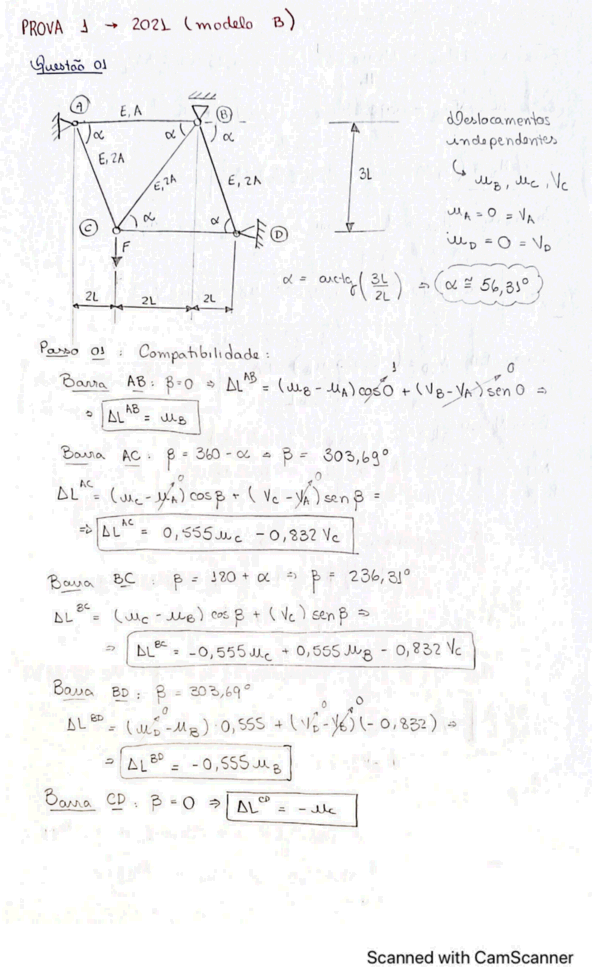 PROVA 1 → 2021 (modelo B)
Questão 01
A
E, A
B
α
α
α
E, 2A
E, 2A
E, 2A
3L
C
α
α
D
F
2L
2L
2L
Deslocamentos
independentes
↳ u_B, u_C, V_C
u_A = 0 = V_A
u_D = 0 = V_D
α = arctg(3L/2L) ⇒ α ≅ 56,31°
Passo 01 : Compatibilidade :
Barra AB : β=0 ⇒ ΔL^AB = (u_B - u_A) cos 0 + (V_B - V_A) sen 0 ⇒
1
0
⇒ ΔL^AB = u_B
Barra AC : β = 360 - α ⇒ β = 303,69°
ΔL^AC = (u_C - u_A) cos β + (V_C - V_A) sen β =
0
0
⇒ ΔL^AC = 0,555 u_C - 0,832 V_C
Barra BC : β = 180 + α ⇒ β = 236,31°
ΔL^BC = (u_C - u_B) cos β + (V_C) sen β ⇒
⇒ ΔL^BC = -0,555 u_C + 0,555 u_B - 0,832 V_C
Barra BD : β = 303,69°
ΔL^BD = (u_D - u_B) · 0,555 + (V_D - V_B)(-0,832) ⇒
0
0
0
⇒ ΔL^BD = -0,555 u_B
Barra CD : β = 0 ⇒ ΔL^CD = - u_C
Scanned with CamScanner